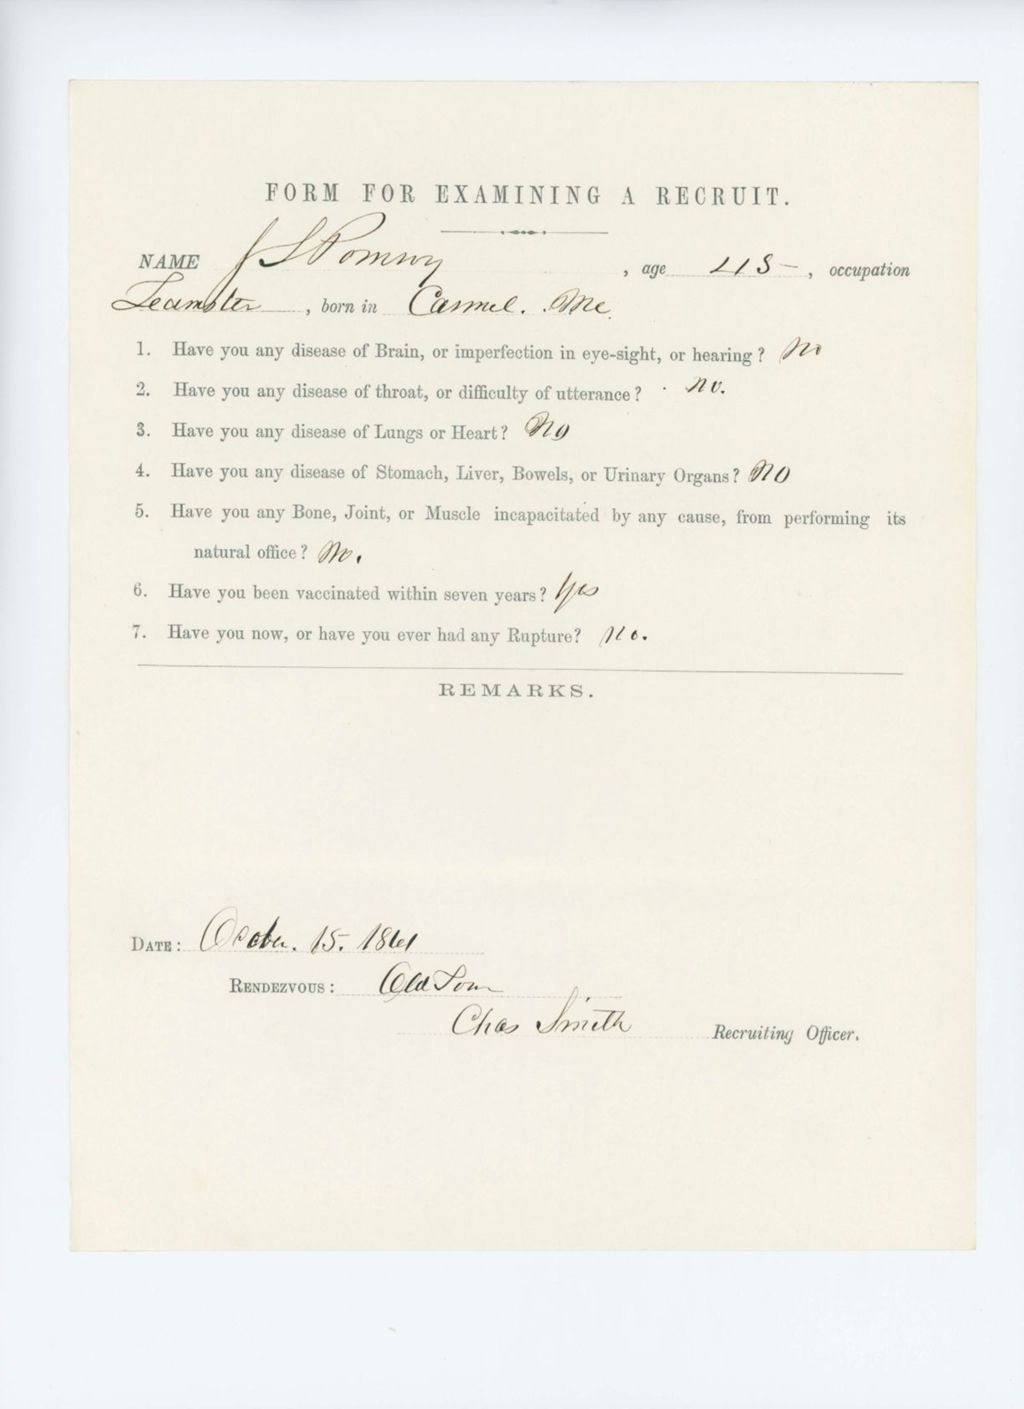 FORM FOR EXAMINING A RECRUIT.
NAME J S Pomroy, age 45, occupation
Teamster, born in Carmel. Me.
1. Have you any disease of Brain, or imperfection in eye-sight, or hearing? No
2. Have you any disease of throat, or difficulty of utterance? No.
3. Have you any disease of Lungs or Heart? No
4. Have you any disease of Stomach, Liver, Bowels, or Urinary Organs? No
5. Have you any Bone, Joint, or Muscle incapacitated by any cause, from performing its
natural office? No.
6. Have you been vaccinated within seven years? Yes
7. Have you now, or have you ever had any Rupture? No.
REMARKS.
DATE: October. 15. 1861
RENDEZVOUS: Old Town
Chas Smith Recruiting Officer.